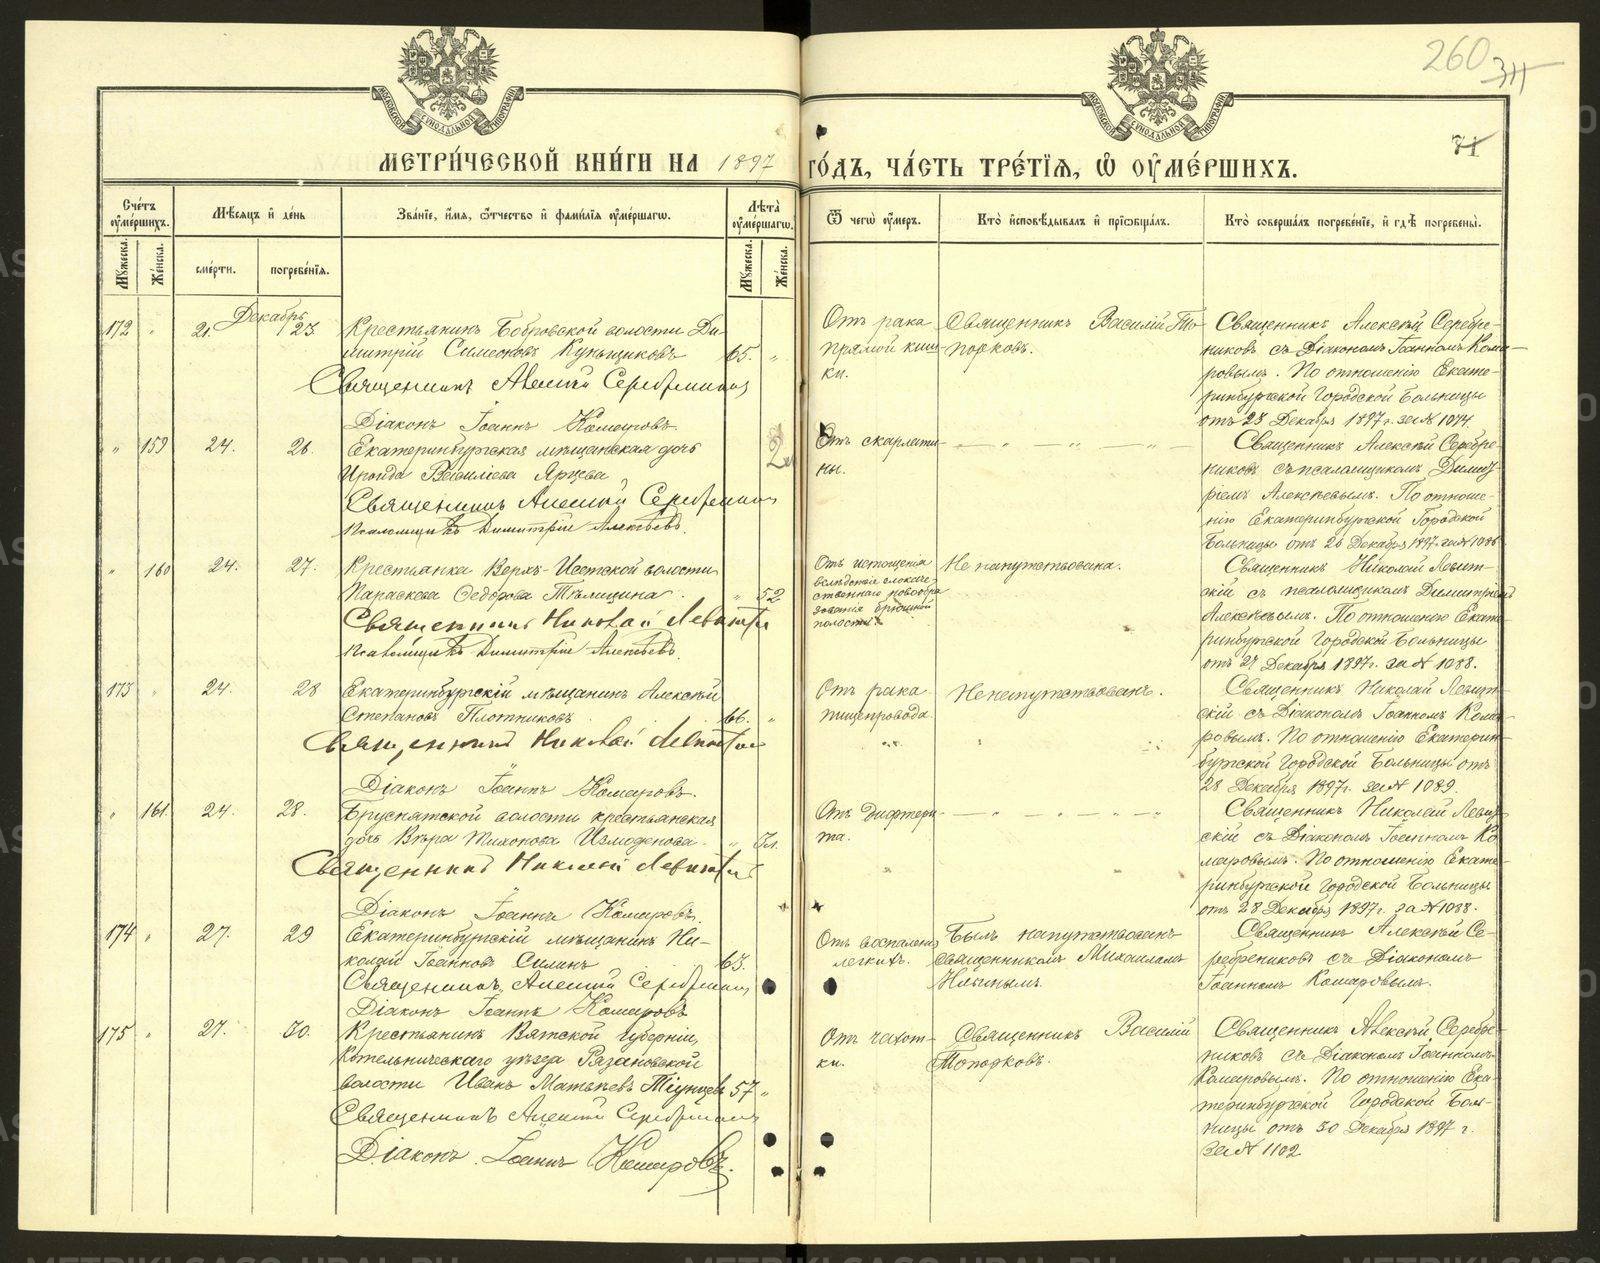 260
311
71
МОСКОВСКОЙ СѴНОДАЛЬНОЙ ТИПОГРАФІИ
МОСКОВСКОЙ СѴНОДАЛЬНОЙ ТИПОГРАФІИ
МЕТРИ́ЧЕСКОЙ КНИ́ГИ НА 1897 ГО́ДЪ, ЧА́СТЬ ТРЕ́ТІѦ, Ѽ ОУМЕ́РШИХЪ.
Сче́тъ оумершихъ.
Мѣсяцъ и де́нь
Зва́ніе, и́мя, ѻтчество и фами́лія оуме́ршагѡ.
Лѣта̀ оуме́ршагѡ.
Ѿ чегѡ̀ оу́меръ.
Кто̀ исповѣ́дывалъ и пріѡбща́лъ.
Кто̀ соверша́лъ погребе́ніе, и гдѣ̀ погребе́ны.
Мꙋжеска.
Же́нска.
сме́рти.
погребе́нія.
Мꙋжеска.
Же́нска.
Декабрь
172 " 21. 23.
Крестьянинъ Бобровской волости Ди-
митрій Симеоновъ Куньщиковъ 65. "
Священникъ Алексѣй Серебрениковъ
Діаконъ Іоаннъ Комаровъ.
Отъ рака
прямой киш-
ки.
Священникъ Василій То-
порковъ.
Священникъ Алексѣй Серебре-
никовъ съ Діакономъ Іоанномъ Кома-
ровымъ. По отношенію Екате-
ринбургской Городской Больницы
отъ 23 Декабря 1897 г. за № 1074.
" 159 24. 26.
Екатеринбургская мѣщанская дочь
Ираида Васильева Ярцева 2
Священникъ Алексѣй Серебрениковъ
Псаломщикъ Димитрій Алексѣевъ.
Отъ скарлати-
ны.
Священникъ Алексѣй Серебре-
никовъ съ псаломщикомъ Димит-
ріемъ Алексѣевымъ. По отноше-
нію Екатеринбургской Городской
Больницы отъ 26 Декабря 1897 г. за № 1086.
" 160 24. 27.
Крестьянка Верхъ-Исетской волости
Параскева Ѳедорова 52
Священникъ Николай Левитскій
Псаломщикъ Димитрій Алексѣевъ.
Отъ истощенія
вслѣдствіе злокаче-
ственнаго новообра-
зованія брюшной
полости.
Не напутствована.
Священникъ Николай Левит-
скій съ псаломщикомъ Димитріемъ
Алексѣевымъ. По отношенію Екате-
ринбургской Городской Больницы
отъ 27 Декабря 1897 г. за № 1088.
173 " 24. 28
Екатеринбургскій мѣщанинъ Алексѣй
Степановъ Плотниковъ 66. "
Священникъ Николай Левитскій
Діаконъ Іоаннъ Комаровъ.
Отъ рака
пищепровода.
Не напутствованъ.
Священникъ Николай Левит-
скій съ Діакономъ Іоанномъ Кома-
ровымъ. По отношенію Екатерин-
бургской Городской Больницы отъ
28 Декабря 1897 г. за № 1089.
" 161. 24. 28.
Бруснятской волости крестьянская
дочь Вѣра Тихонова Измоденова. " 3 л.
Священникъ Николай Левитскій
Діаконъ Іоаннъ Комаровъ.
Отъ дифтери-
та.
Священникъ Николай Левит-
скій съ Діакономъ Іоанномъ Ко-
маровымъ. По отношенію Екате-
ринбургской Городской Больницы
отъ 28 Декабря 1897 г. за № 1088.
174 " 27. 29
Екатеринбургскій мѣщанинъ Ни-
колай Іоанновъ Силинъ 63. "
Священникъ Алексѣй Серебрениковъ
Діаконъ Іоаннъ Комаровъ
Отъ воспаленія
легкихъ.
Былъ напутствованъ
священникомъ Михаиломъ
Священникъ Алексѣй Се-
ребрениковъ съ Діакономъ
Іоанномъ Комаровымъ.
175 " 27. 30.
Крестьянинъ Вятской Губерніи,
Котельническаго уѣзда Рязановской
волости Иванъ Матвѣевъ 57 "
Священникъ Алексѣй Серебрениковъ
Діаконъ Іоаннъ Комаровъ.
Отъ чахот-
ки.
Священникъ Василій
Топорковъ.
Священникъ Алексѣй Серебре-
никовъ съ Діакономъ Іоанномъ
Комаровымъ. По отношенію Ека-
теринбургской Городской Боль-
ницы отъ 30 Декабря 1897 г.
за № 1102.